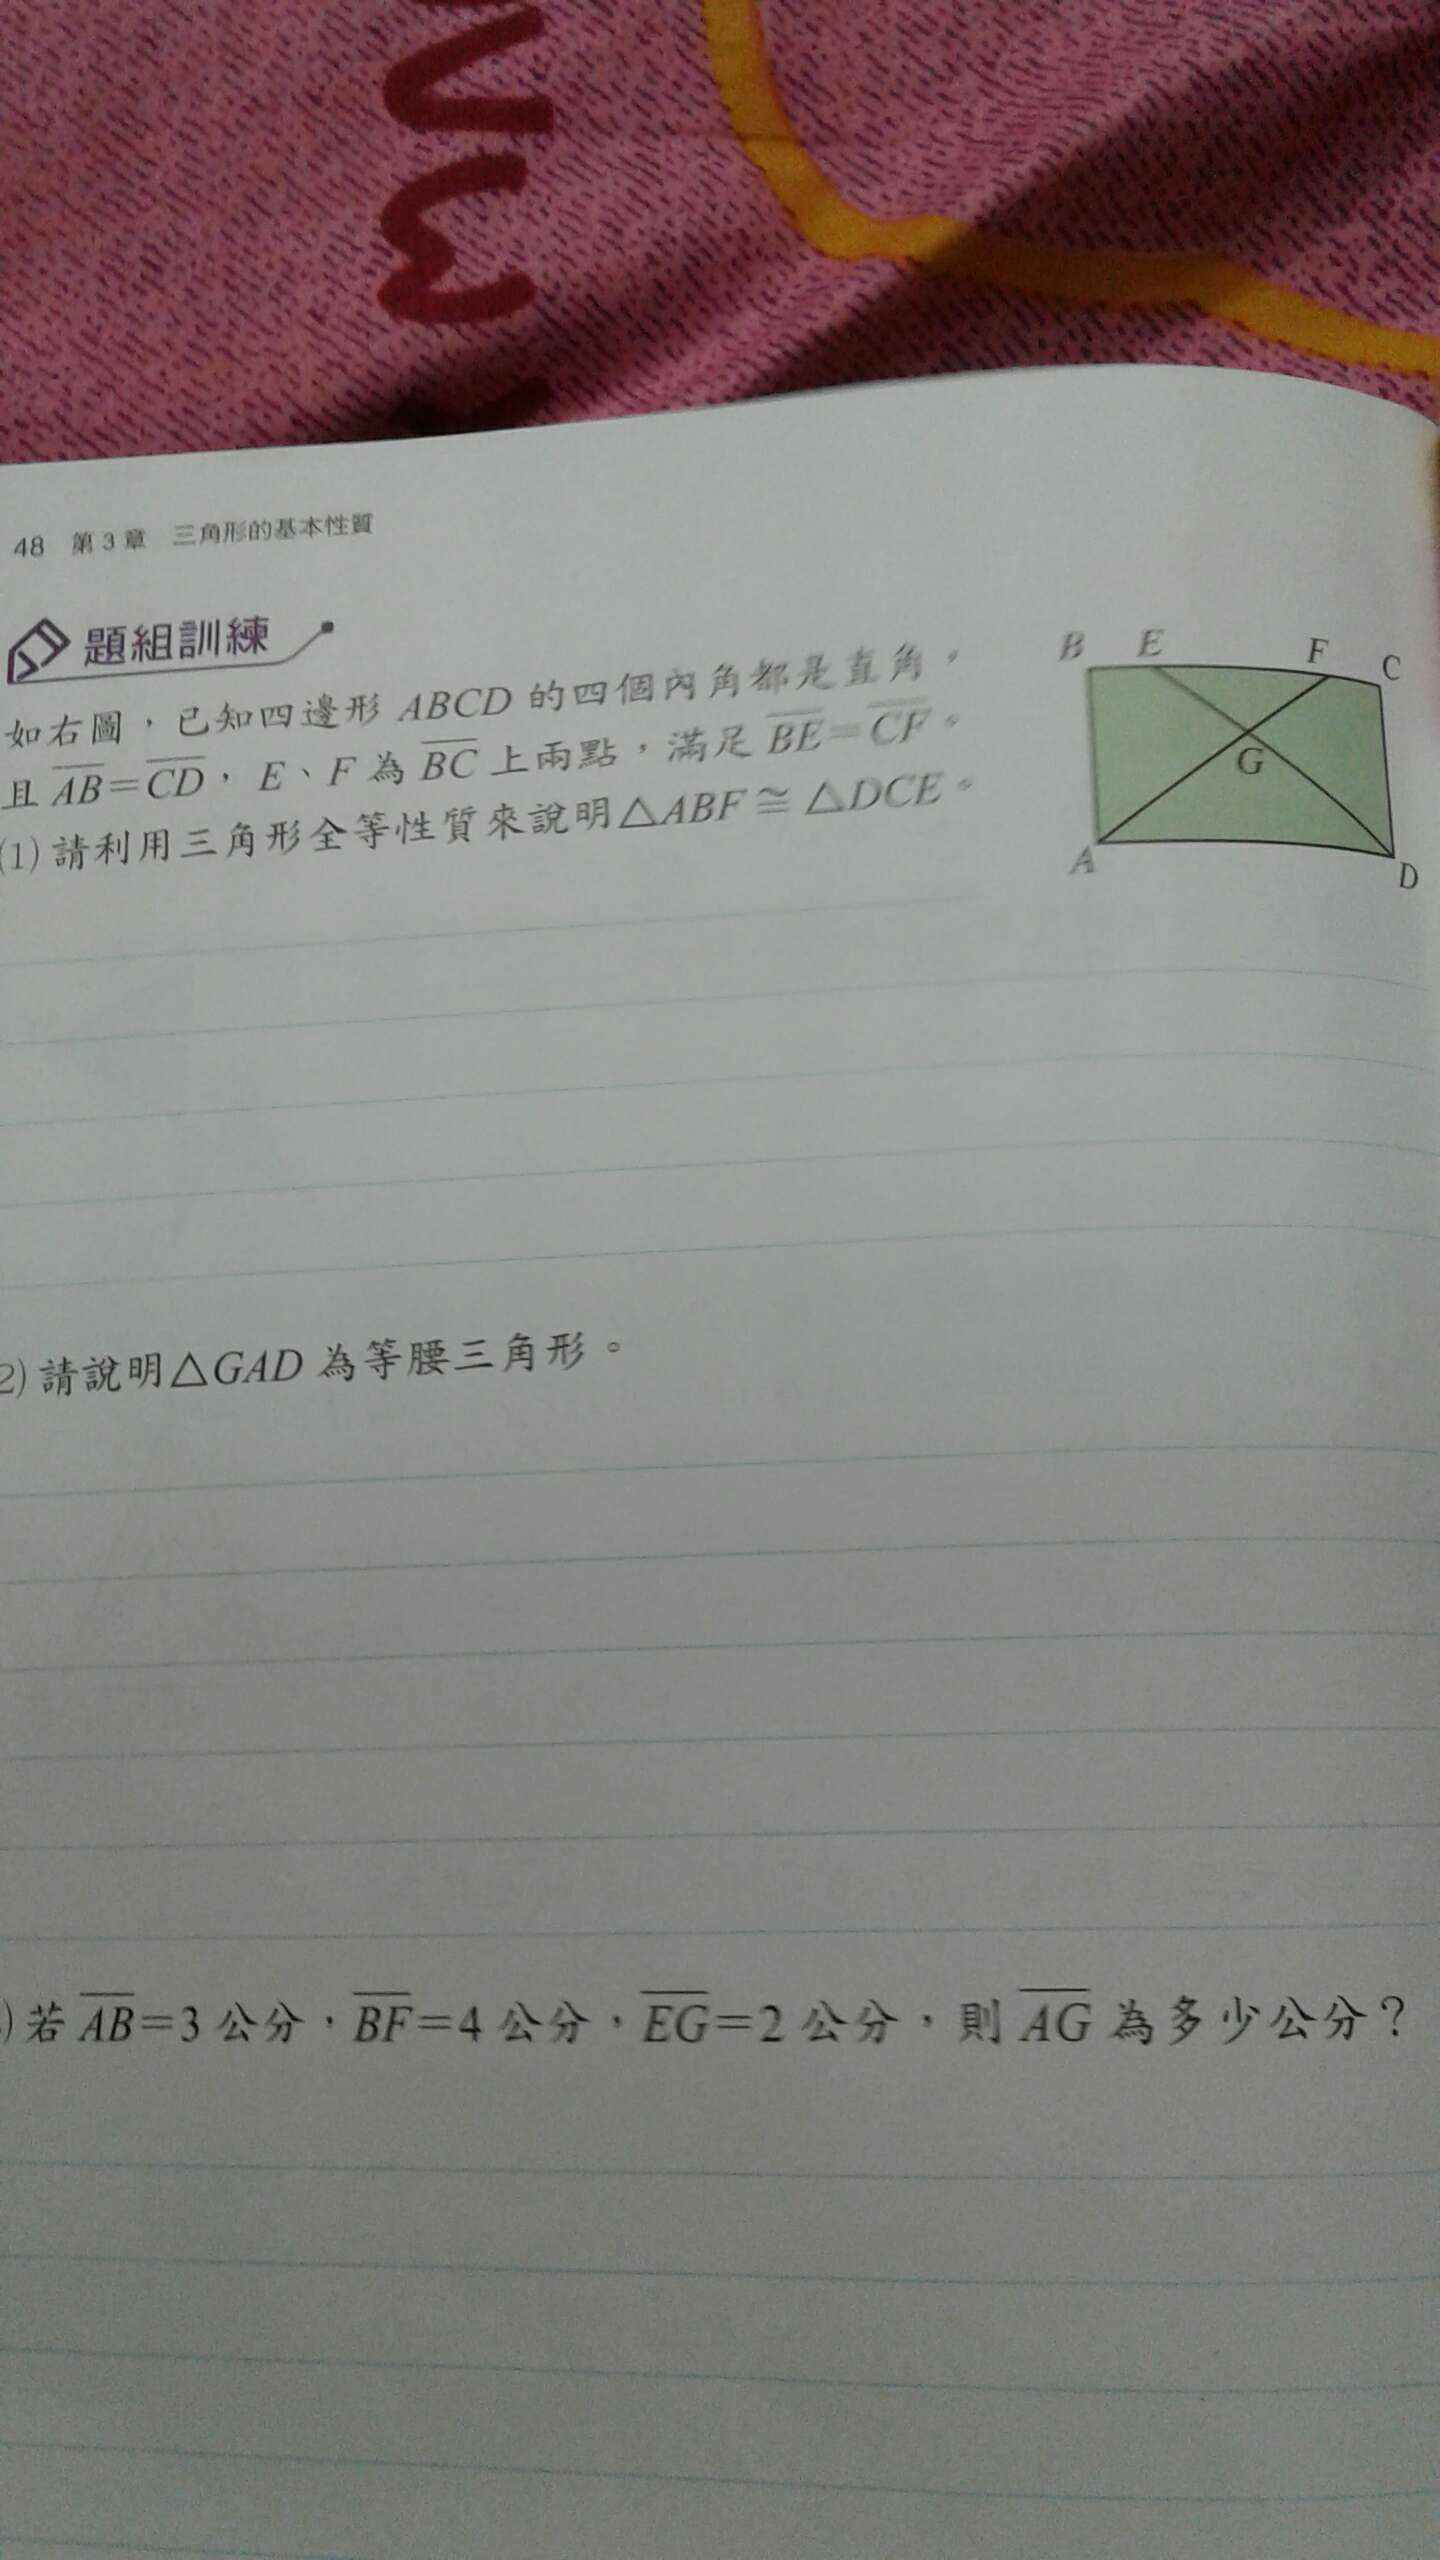 48 第3章 三角形的基本性質
題組訓練
如右圖，已知四邊形 ABCD 的四個內角都是直角，
且 AB=CD，E、F 為 BC 上兩點，滿足 BE=CF。
(1) 請利用三角形全等性質來說明△ABF≅△DCE。
B E F C
G
A D
2) 請說明△GAD 為等腰三角形。
) 若 AB=3 公分，BF=4 公分，EG=2 公分，則 AG 為多少公分？